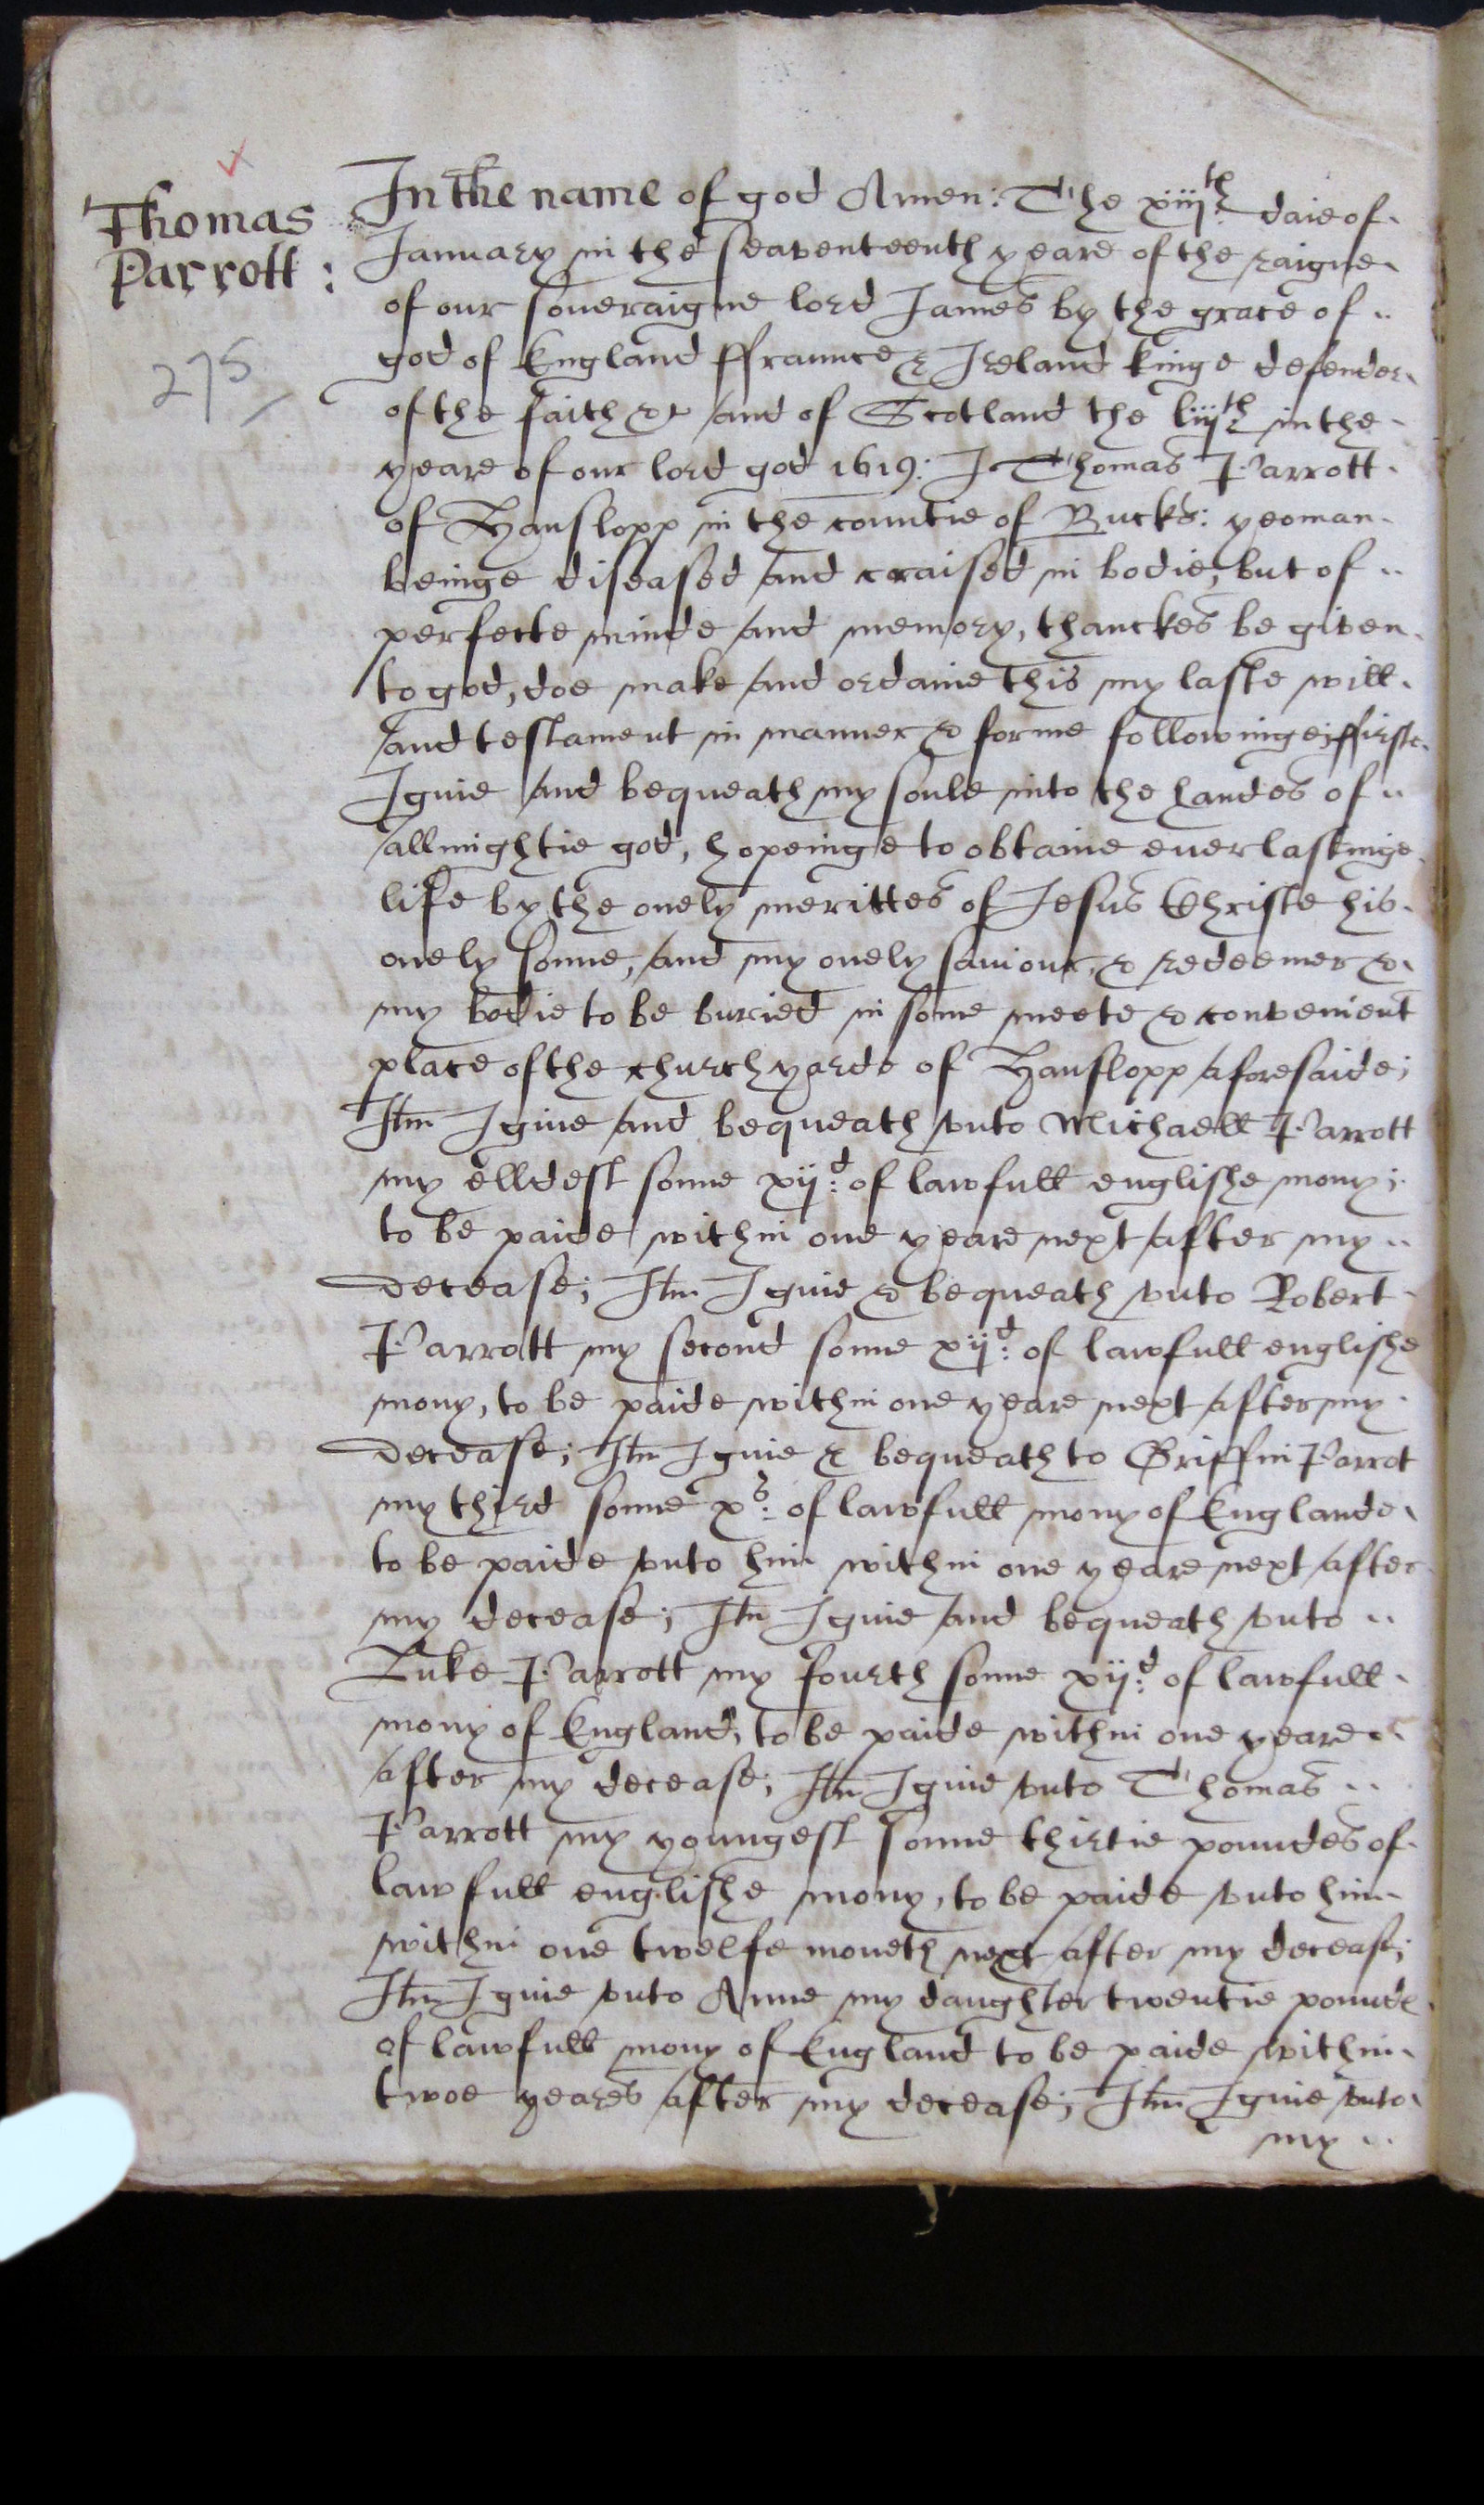 Thomas
Parrott:
275
In the name of god Amen: The xiij th daie of
January in the seaventeenth yeare of the raigne
of our soueraigne lord James by the grace of
god of England ffraunce & Ireland kinge defender
of the faith &c and of Scotland the liij th in the
yeare of our lord god 1619: I Thomas Parrott
of Hanslopp in the countie of Bucks: yeoman
beinge diseased and craised in bodie, but of
perfecte minde and memory, thanckes be given
to god, doe make and ordaine this my laste will
and testament in manner & forme followinge; ffirste
I giue and bequeath my soule into the handes of
allmightie god, hopeinge to obtaine euerlastinge
life by the onely merittes of Jesus Christe his
onely sonne, and my onely saviour, & redeemer &
my bodie to be buried in some meete & convenient
place of the churchyarde of Hanslopp aforesaide;
Itm I giue and bequeath vnto Michaell Parrott
my elldest sonne xij d: of lawfull englishe mony;
to be paide within one yeare next after my
decease; Itm I giue & bequeath vnto Robert
Parrott my second sonne xij d: of lawfull englishe
mony, to be paide within one yeare next after my
decease; Itm I giue & bequeath to Griffin Parrot
my third sonne x s: of lawfull mony of Englande
to be paide vnto him within one yeare next after
my decease; Itm I giue and bequeath vnto
Luke Parrott my fourth sonne xij d: of lawfull
mony of England, to be paide within one yeare
after my decease; Itm I giue vnto Thomas
Parrott my youngest sonne thirtie poundes of
lawfull englishe mony, to be paide vnto him
within one twelfe moneth next after my decease;
Itm I giue vnto Anne my daughter twentie pounde
of lawfull mony of England to be paide within
twoe yeares after my decease; Itm I giue vnto
my